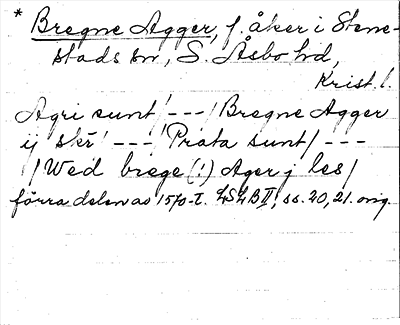 * Bregne Agger, f. åker i Stene-
stads sn, S. Åsbo hd,
Krist. l.
Agri sunt/---/Bregne Agger
ij skr̄ /---/Prata sunt/---
/Wed brege (!) Ager j les/
förra delen av 1570-t. LSLB II, ss. 20, 21. orig.